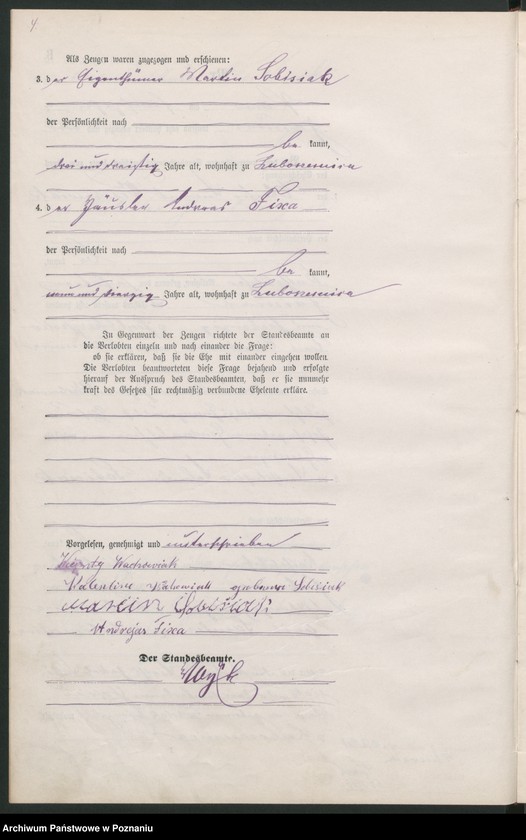 4.
Als Zeugen waren zugezogen und erschienen:
3. der Eigenthümer Martin Sobisiak
der Persönlichkeit nach
be kannt,
drei und dreißig Jahre alt, wohnhaft zu
4. der Häusler Andreas Fixa
der Persönlichkeit nach
be kannt,
neun und vierzig Jahre alt, wohnhaft zu
In Gegenwart der Zeugen richtete der Standesbeamte an
die Verlobten einzeln und nach einander die Frage:
ob sie erklären, daß sie die Ehe mit einander eingehen wollen.
Die Verlobten beantworteten diese Frage bejahend und erfolgte
hierauf der Ausspruch des Standesbeamten, daß er sie nunmehr
kraft des Gesetzes für rechtmäßig verbundene Eheleute erkläre.
Vorgelesen, genehmigt und unterschrieben
Valentine geborene Sobisiak
Marcin Sobisiak
Andrejas Fixa
Der Standesbeamte.
Archiwum Państwowe w Poznaniu